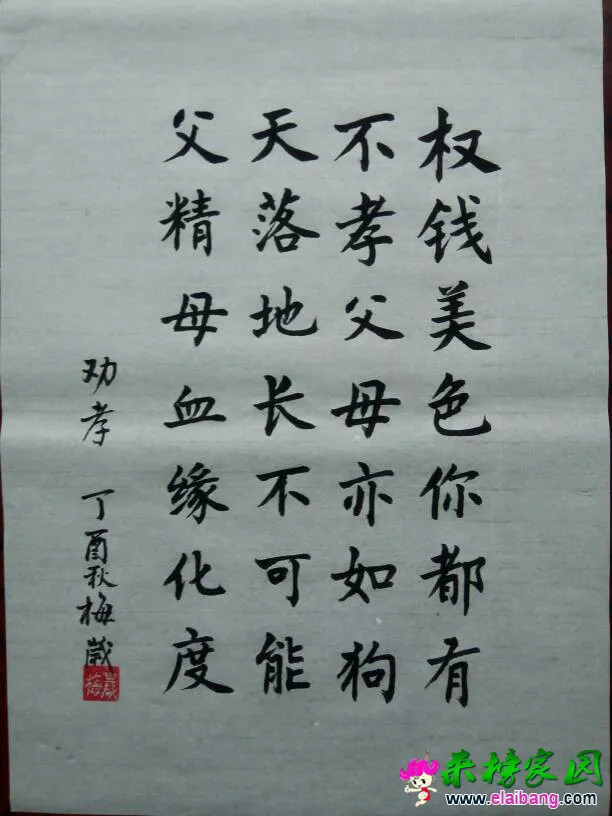 权钱美色你都有
不孝父母亦如狗
天落地长不可能
父精母血缘化度
劝孝 丁酉秋梅崴
梅崴
来榜家园
www.elaibang.com